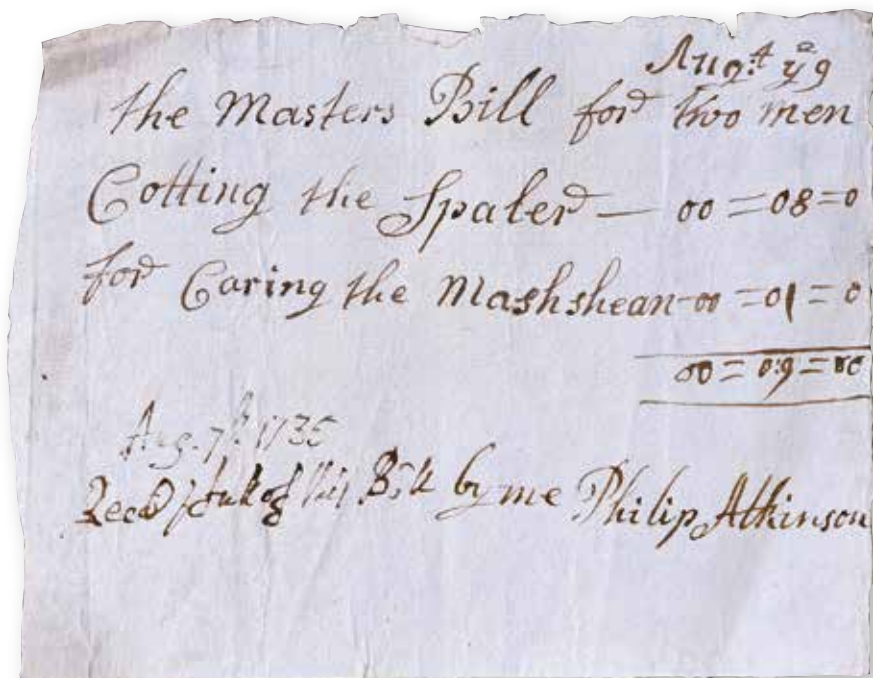 Augst ye 9
the Masters Bill for two men
Cotting the Spaler — 00=08=0
for Caring the Mashshean - 00=01=0
00=09=00
Aug. 7th. 1735
Recd full of this Bill by me Philip Atkinson